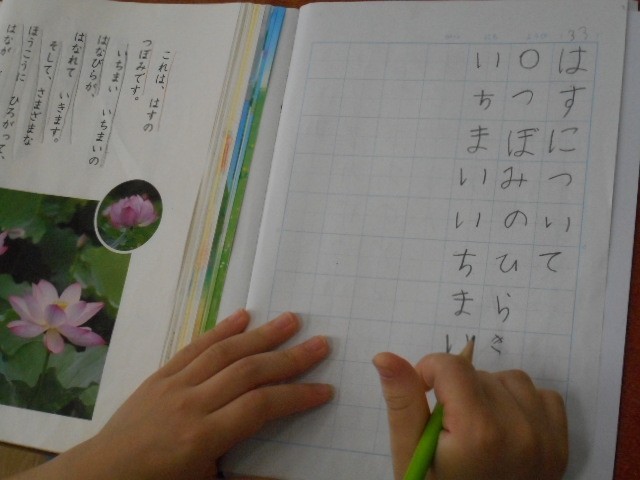 33
はすについて
○つぼみのひらき
いちまいいちまい
これは、はすの
つぼみです。
いちまい いちまいの
はなびらが、
はなれて いきます。
そして、さまざまな
ほうこうに ひろがって、
はなが